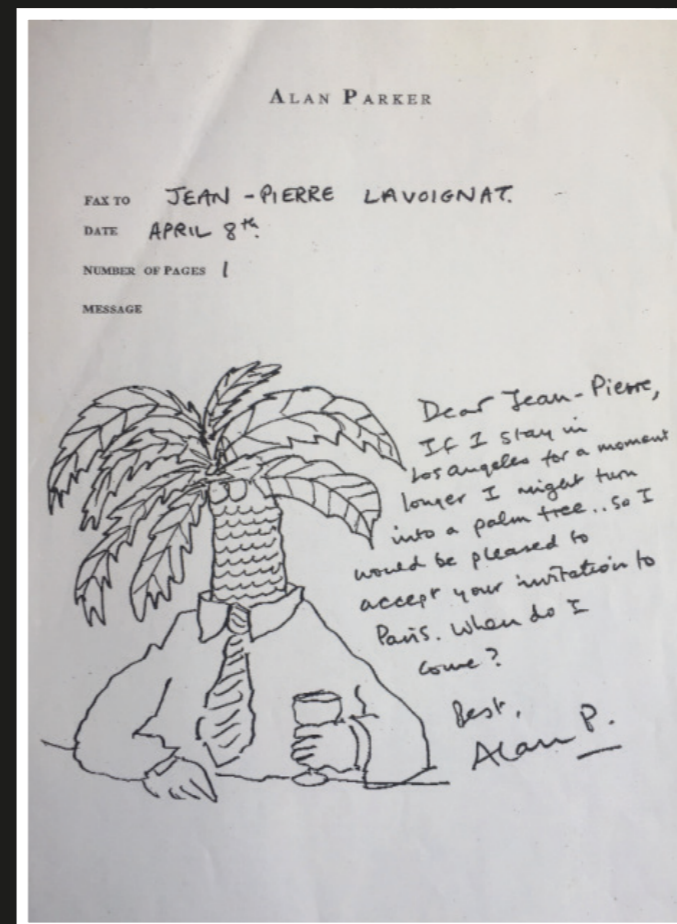 ALAN PARKER
FAX TO JEAN-PIERRE LAVOIGNAT.
DATE APRIL 8th.
NUMBER OF PAGES 1
MESSAGE
Dear Jean-Pierre,
If I stay in
Los Angeles for a moment
longer I might turn
into a palm tree.. so I
would be pleased to
accept your invitation to
Paris. When do I
come?
Best,
Alan P.